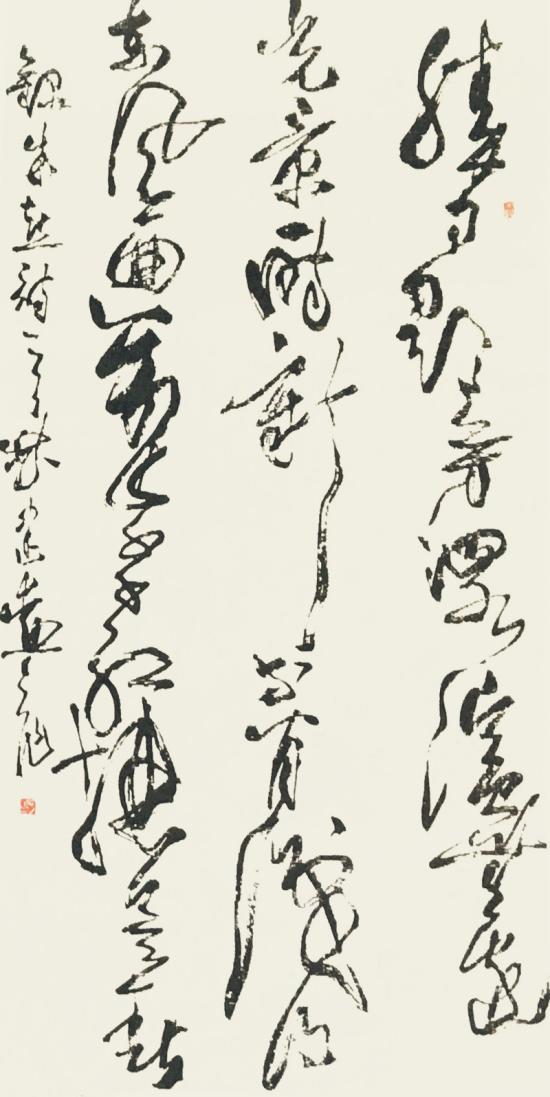 勝日尋芳泗水濱無邊
光景一時新等閒識得
東風面萬紫千紅總是春
錄朱熹詩一首